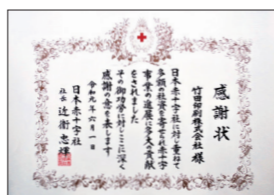 感謝状
竹田印刷株式会社様
日本赤十字社に対し重ねて
多額の社資を寄せられ赤十字
事業の進展に多大の貢献
をされました
その御功労に対しここに深く
感謝の意を表します
令和元年六月一日
日本赤十字社
社長 近衞忠煇